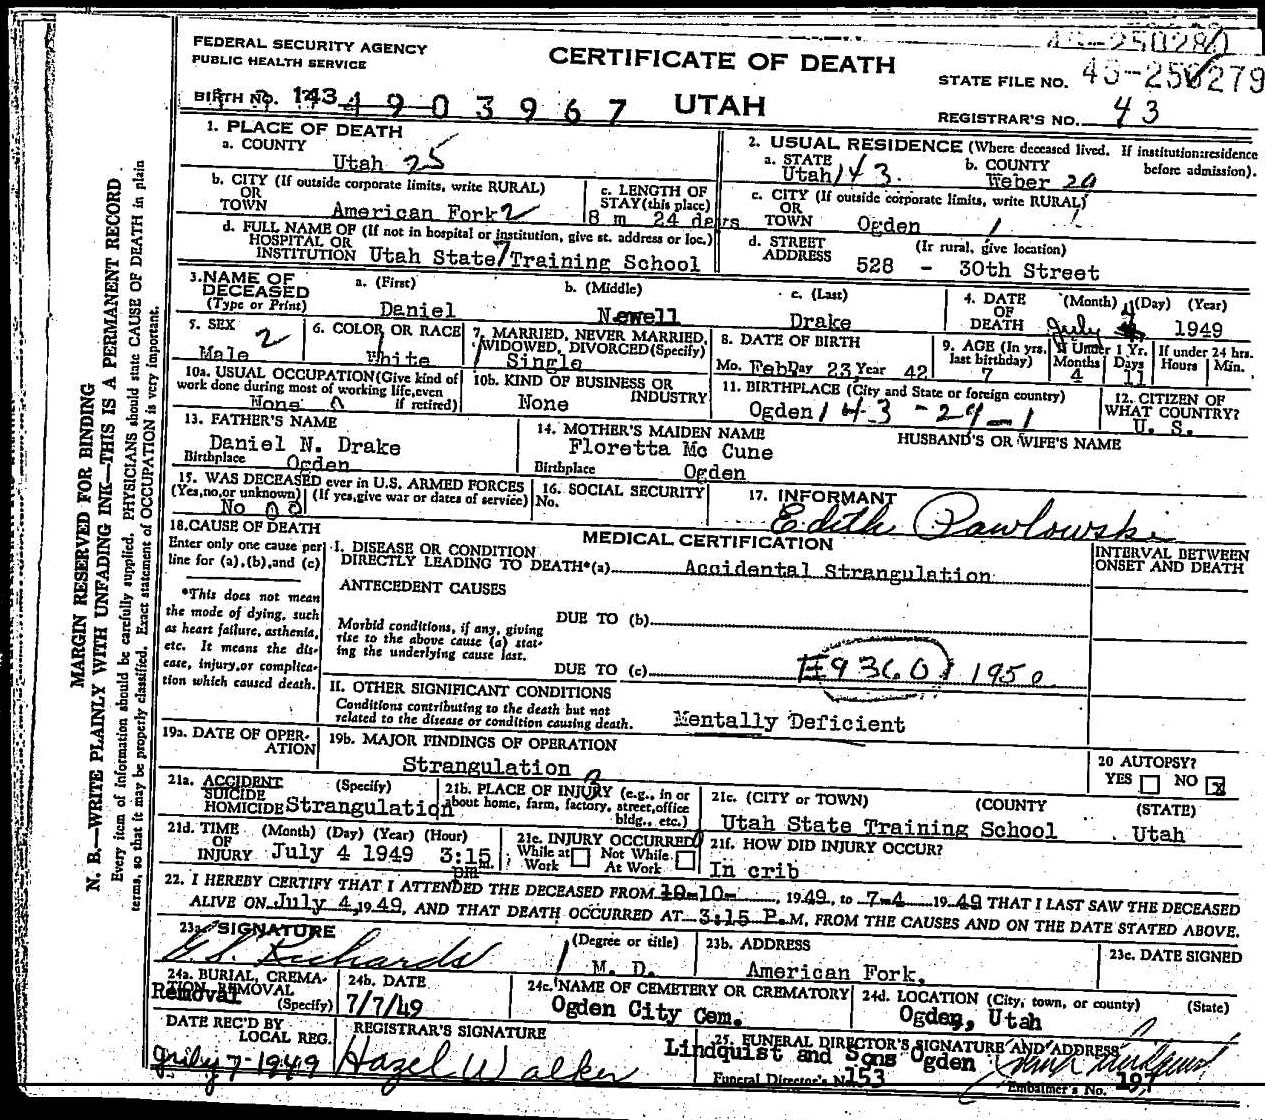 FEDERAL SECURITY AGENCY
PUBLIC HEALTH SERVICE
CERTIFICATE OF DEATH
UTAH
STATE FILE NO. 49-250279
BIRTH NO. 143 4903967
REGISTRAR'S NO. 43
1. PLACE OF DEATH
a. COUNTY
Utah 25
2. USUAL RESIDENCE (Where deceased lived. If institution:residence before admission).
a. STATE b. COUNTY
Utah 143. Weber 29
b. CITY (If outside corporate limits, write RURAL)
OR
TOWN American Fork 2
c. LENGTH OF
STAY (this place)
8 m 24 days
c. CITY (If outside corporate limits, write RURAL)
OR
TOWN Ogden 1
d. FULL NAME OF (If not in hospital or institution, give st. address or loc.)
HOSPITAL OR
INSTITUTION Utah State Training School
d. STREET (If rural, give location)
ADDRESS 528 - 30th Street
3. NAME OF a. (First) b. (Middle) c. (Last)
DECEASED
(Type or Print) Daniel Newell Drake
4. DATE (Month) (Day) (Year)
OF
DEATH July 4 1949
5. SEX 2
Male
6. COLOR OR RACE
White
7. MARRIED, NEVER MARRIED,
WIDOWED, DIVORCED (Specify)
Single
8. DATE OF BIRTH
Mo. Feb Day 23 Year 42
9. AGE (In yrs. last birthday)
7
If Under 1 Yr.
Months Days
4 11
If under 24 hrs.
Hours Min.
10a. USUAL OCCUPATION (Give kind of
work done during most of working life, even
if retired)
None 0
10b. KIND OF BUSINESS OR
INDUSTRY
None
11. BIRTHPLACE (City and State or foreign country)
Ogden 143-29-1
12. CITIZEN OF
WHAT COUNTRY?
U. S.
13. FATHER'S NAME
Daniel N. Drake
Birthplace Ogden
14. MOTHER'S MAIDEN NAME
Floretta Mc Cune
Birthplace Ogden
HUSBAND'S OR WIFE'S NAME
15. WAS DECEASED ever in U.S. ARMED FORCES
(Yes,no,or unknown) (If yes,give war or dates of service)
No
16. SOCIAL SECURITY
No.
17. INFORMANT
Edith Pawlowski
18. CAUSE OF DEATH
Enter only one cause per
line for (a),(b),and (c)
*This does not mean
the mode of dying, such
as heart failure, asthenia,
etc. It means the dis-
ease, injury,or complica-
tion which caused death.
MEDICAL CERTIFICATION
INTERVAL BETWEEN
ONSET AND DEATH
I. DISEASE OR CONDITION
DIRECTLY LEADING TO DEATH*(a) Accidental Strangulation
ANTECEDENT CAUSES
DUE TO (b)
Morbid conditions, if any, giving
rise to the above cause (a) stat-
ing the underlying cause last.
DUE TO (c) E9360 1950
II. OTHER SIGNIFICANT CONDITIONS
Conditions contributing to the death but not
related to the disease or condition causing death. Mentally Deficient
19a. DATE OF OPER-
ATION
19b. MAJOR FINDINGS OF OPERATION
Strangulation
20 AUTOPSY?
YES NO x
21a. ACCIDENT (Specify)
SUICIDE
HOMICIDE Strangulation
21b. PLACE OF INJURY (e.g., in or
about home, farm, factory, street,office
bldg., etc.)
21c. (CITY or TOWN) (COUNTY) (STATE)
Utah State Training School Utah
21d. TIME (Month) (Day) (Year) (Hour)
OF
INJURY July 4 1949 3:15 pm
21e. INJURY OCCURRED
While at Work Not While At Work
21f. HOW DID INJURY OCCUR?
In crib
22. I HEREBY CERTIFY THAT I ATTENDED THE DECEASED FROM 10-10-, 1949, to 7-4 1949 THAT I LAST SAW THE DECEASED
ALIVE ON July 4, 1949, AND THAT DEATH OCCURRED AT 3:15 P.M, FROM THE CAUSES AND ON THE DATE STATED ABOVE.
23a. SIGNATURE (Degree or title)
Richards M. D.
23b. ADDRESS
American Fork,
23c. DATE SIGNED
24a. BURIAL, CREMA-
TION, REMOVAL
(Specify)
Removal
24b. DATE
7/7/49
24c. NAME OF CEMETERY OR CREMATORY
Ogden City Cem.
24d. LOCATION (City, town, or county) (State)
Ogden, Utah
DATE REC'D BY
LOCAL REG.
July 7-1949
REGISTRAR'S SIGNATURE
Hazel Walker
25. FUNERAL DIRECTOR'S SIGNATURE AND ADDRESS
Lindquist and Sons Ogden
Funeral Director's No. 153
Embalmer's No. 197
MARGIN RESERVED FOR BINDING
N. B.—WRITE PLAINLY WITH UNFADING INK—THIS IS A PERMANENT RECORD
Every item of information should be carefully supplied. PHYSICIANS should state CAUSE OF DEATH in plain
terms, so that it may be properly classified. Exact statement of OCCUPATION is very important.